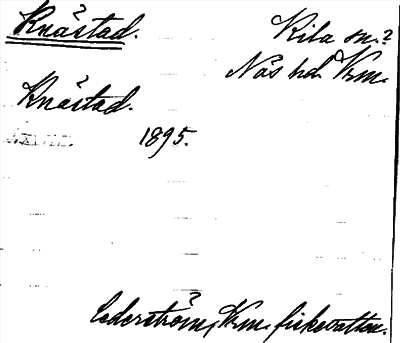 Knåstad.
Kila sn.?
Näs hd. Vrm.
Knåstad.
1895.
Cederström, Vrm. fiskevatten.